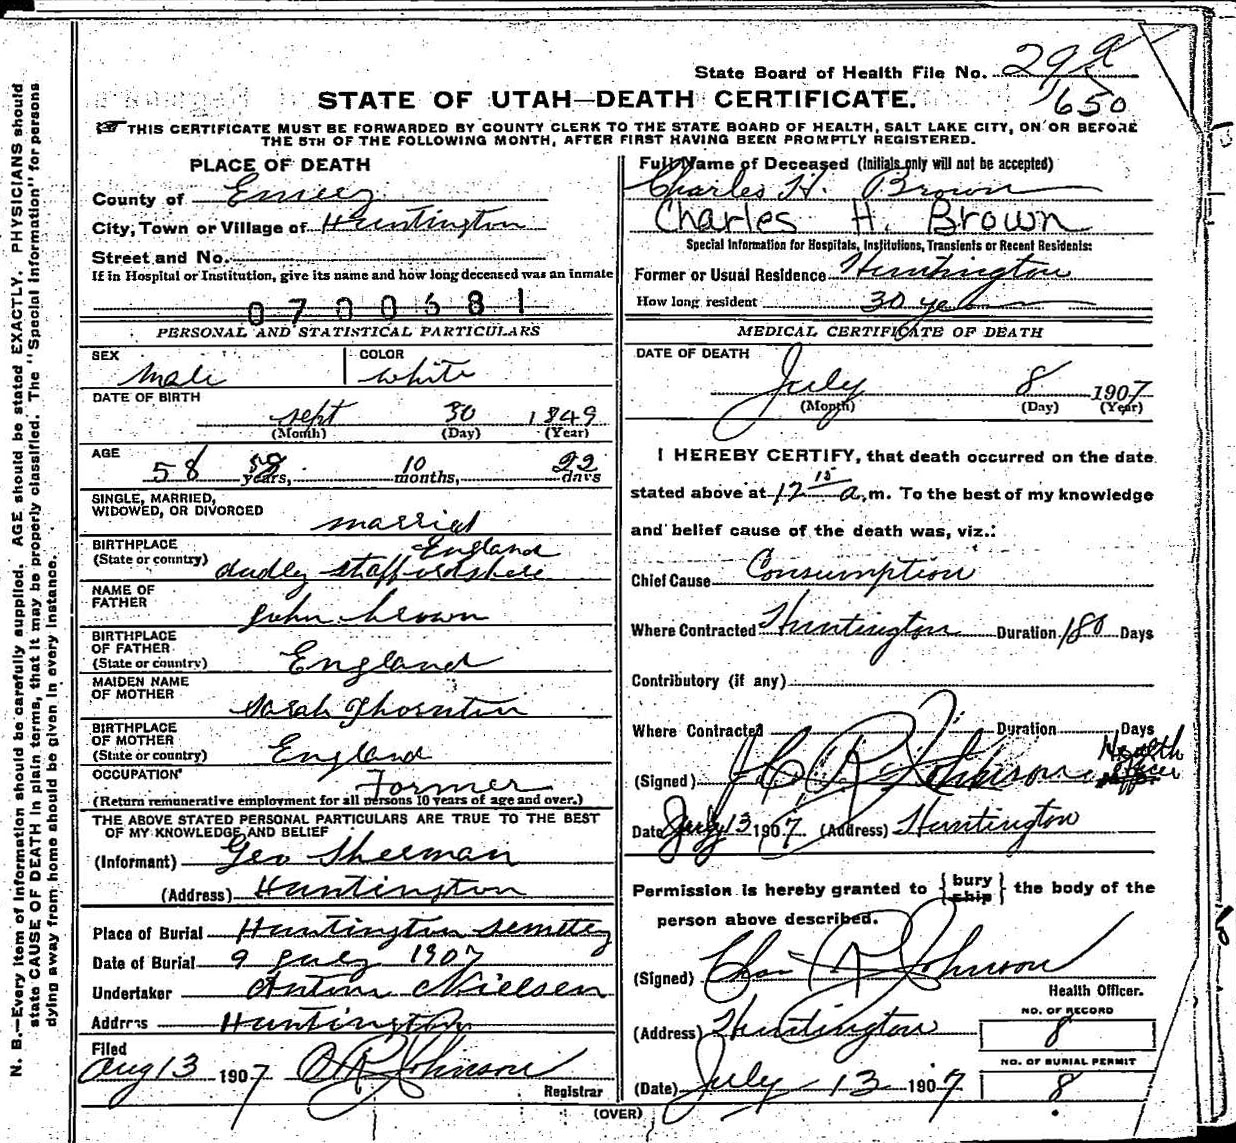 State Board of Health File No. 29
1650
STATE OF UTAH—DEATH CERTIFICATE.
THIS CERTIFICATE MUST BE FORWARDED BY COUNTY CLERK TO THE STATE BOARD OF HEALTH, SALT LAKE CITY, ON OR BEFORE
THE 5TH OF THE FOLLOWING MONTH, AFTER FIRST HAVING BEEN PROMPTLY REGISTERED.
PLACE OF DEATH
County of Emery
City, Town or Village of Huntington
Street and No.
If in Hospital or Institution, give its name and how long deceased was an inmate
0700681
PERSONAL AND STATISTICAL PARTICULARS
SEX Male
COLOR white
DATE OF BIRTH
sept 30 1849
(Month) (Day) (Year)
AGE
58 58 years, 10 months, 22 days
SINGLE, MARRIED,
WIDOWED, OR DIVORCED married
BIRTHPLACE England
(State or country) dudley staffordshire
NAME OF
FATHER John brown
BIRTHPLACE
OF FATHER
(State or country) England
MAIDEN NAME
OF MOTHER Sarah Thornton
BIRTHPLACE
OF MOTHER
(State or country) England
OCCUPATION Former
(Return remunerative employment for all persons 10 years of age and over.)
THE ABOVE STATED PERSONAL PARTICULARS ARE TRUE TO THE BEST
OF MY KNOWLEDGE AND BELIEF
(Informant) Geo Sherman
(Address) Huntington
Place of Burial Huntington semettey
Date of Burial 9 July 1907
Undertaker Anton Nielsen
Address Huntington
Filed
Aug 13 1907 Johnson
Registrar
Full Name of Deceased (Initials only will not be accepted)
Charles H. Brown
Charles H. Brown
Special Information for Hospitals, Institutions, Transients or Recent Residents:
Former or Usual Residence Huntington
How long resident 30
MEDICAL CERTIFICATE OF DEATH
DATE OF DEATH
July 8 1907
(Month) (Day) (Year)
I HEREBY CERTIFY, that death occurred on the date
stated above at 12 15 a.m. To the best of my knowledge
and belief cause of the death was, viz.:
Chief Cause Consumption
Where Contracted Huntington Duration 180 Days
Contributory (if any)
Where Contracted Duration Days
(Signed) Johnson Health officer
Date July 13 1907 (Address) Huntington
Permission is hereby granted to {bury ship} the body of the
person above described.
(Signed) Chas R Johnson
Health Officer.
(Address) Huntington
NO. OF RECORD
8
(Date) July 13 1907
NO. OF BURIAL PERMIT
8
(OVER)
N. B.—Every item of information should be carefully supplied. AGE should be stated EXACTLY. PHYSICIANS should
state CAUSE OF DEATH in plain terms, that it may be properly classified. The "Special Information" for persons
dying away from home should be given in every instance.